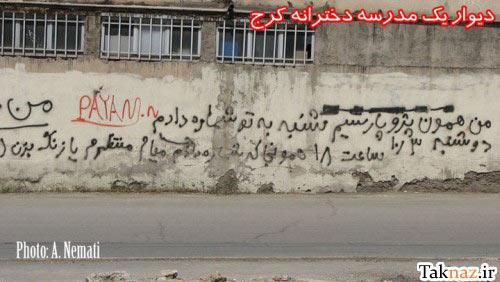 دیوار یک مدرسه دخترانه کرج
من
PAYAM.n
من همون پژو پارسیم شنبه به تو شماره دادم
دوشنبه ۳
ساعت ۱۸ همونجا که شماره دادم میام منتظرم یا زنگ بزن
Photo: A. Nemati
Taknaz.ir